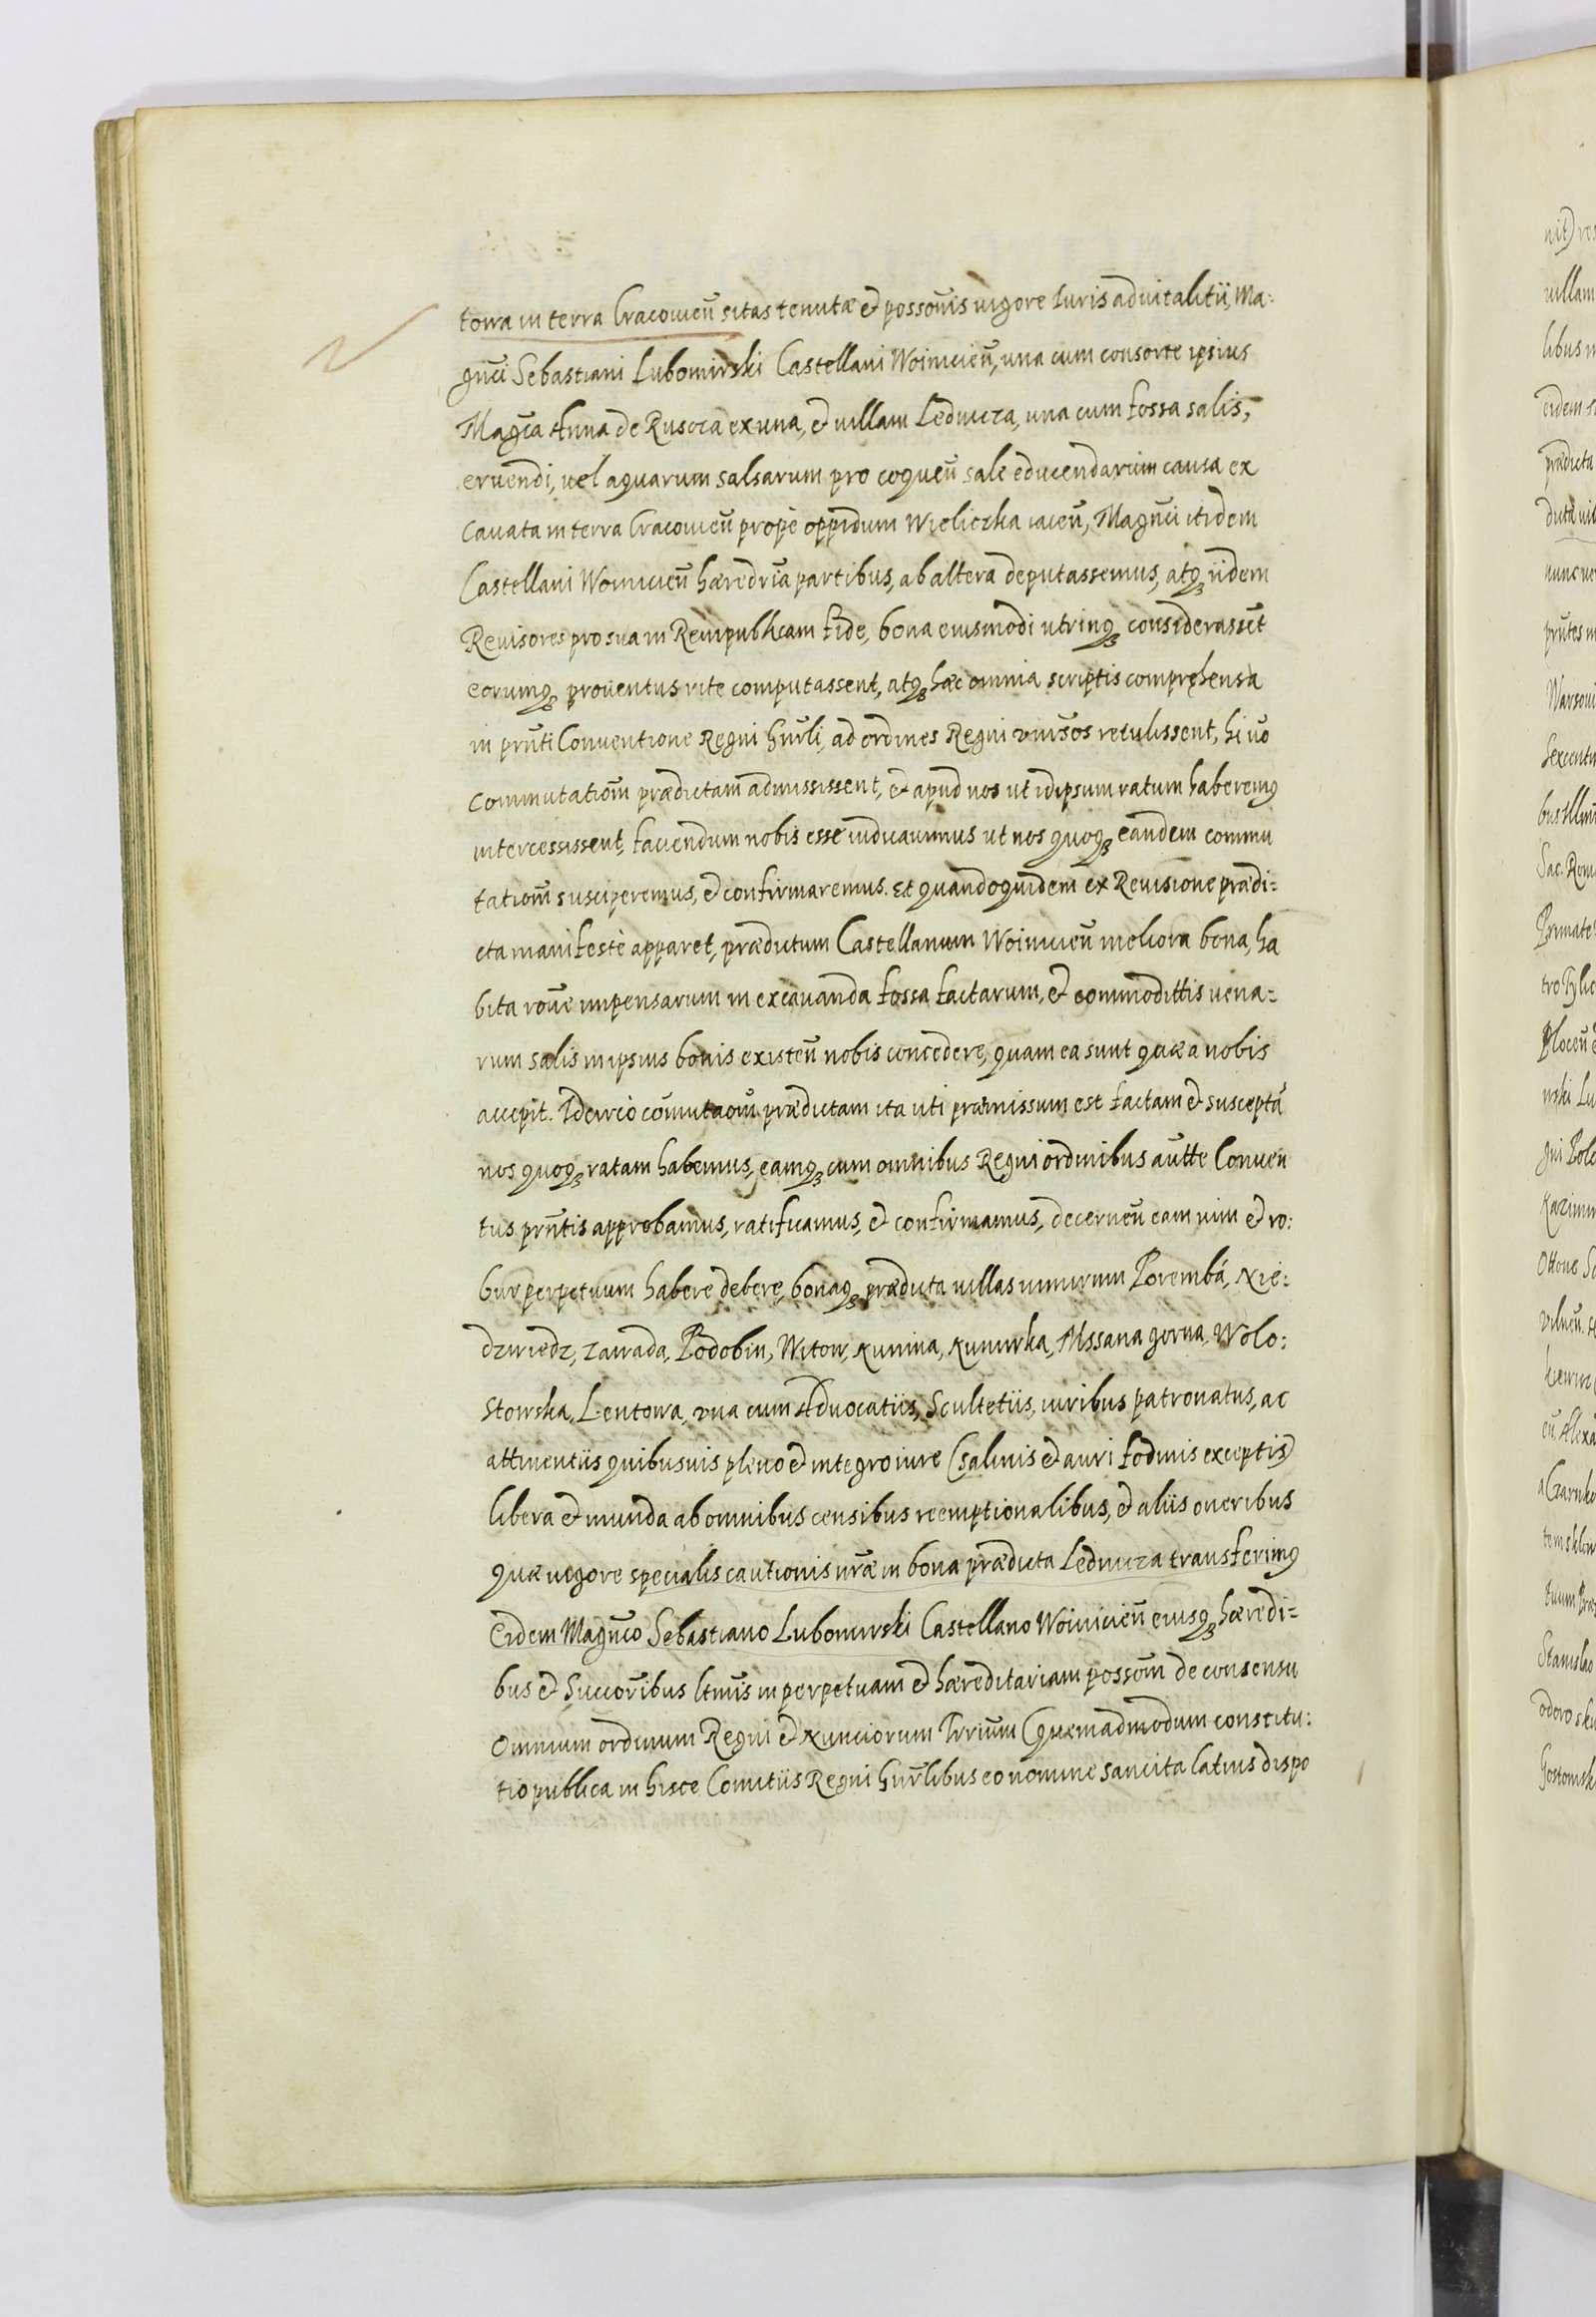 towa in terra Cracovieñ sitas tenutæ et possoñis vigore Iuris advitalitii, Ma:
gñci Sebastiani Lubomirski Castellani Woinicieñ, una cum consorte ipsius
Magña Anna de Rusocza ex una, et villam Lednicza, una cum fossa salis,
eruendi, vel aquarum salsarum pro coqueñ sale educendarum causa ex
cavata in terra Cracovieñ propè oppidum Wieliczka iaceñ, Magñci itidem
Castellani Woinicieñ hæredria partibus, ab altera deputassemus, atq3 iidem
Revisores pro sua in Rempublicam fide, bona eiusmodi utrinq3 considerassēt
eorumq3 proventus rite computassent, atq3 hæc omnia scriptis comprehensa
in prñti Conventione Regni Gnrli, ad ordines Regni universos retulissent, hi uō
commutatiom̄ prædictam admississent, et apud nos ut id ipsum ratum haberemꝰ
intercessissent, faciendum nobis esse iudicavimus ut nos quoq3 eandem commu
tatiom̄ susciperemus, et confirmaremus. Et quandoquidem ex Revisione prædi:
cta manifestè apparet, prædictum Castellanum Woinicieñ meliora bona, ha
bita rōne impensarum in excavanda fossa factarum, et commodittis vena:
rum salis in ipsius bonis existeñ nobis concedere, quam ea sunt quæ a nobis
accepit. Idcirco com̄utaōm prædictam ita uti præmissum est factam et susceptā
nos quoq3 ratam habemus, eamq3 cum omnibus Regni ordinibus autte Conven
tus prñtis approbamus, ratificamus, et confirmamus, decerneñ eam vim et ro:
bur perpetuum habere debere, bonaq3 prædicta villas nimirum Porembā, Nie:
dzwiedz, Zawada, Podobin, Witow, Kunina, Kuninka, Mssana gorna, Wolo:
stowska, Lentowa, una cum Advocatiis, Scultetiis, iuribus patronatus, ac
attinentiis quibusvis pleno et integro iure (salinis et auri fodinis exceptis)
libera et munda ab omnibus censibus reemptionalibus, et aliis oneribus
quæ vigore specialis cautionis nr̄æ in bona prædicta Lednicza transferimꝰ
Eidem Magñco Sebastiano Lubomirski Castellano Woinicieñ eiusq3 hæredi:
bus et Succoribus ltmīs in perpetuam et hæreditariam possom̄ de consensu
omnium ordinum Regni et Nunciorum Trrium (quemadmodum constitu:
tio publica in hisce Comitiis Regni Gnrlibus eo nomine sancita latius dispo